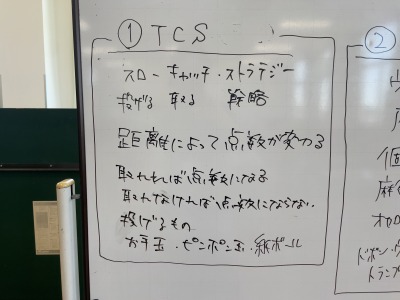 ① TCS
スロー・キャッチ・ストラテジー
投げる 取る 戦略
距離によって点数が変わる
取れれば点数になる
取れなければ点数にならない。
投げるもの
お手玉・ピンポン玉・紙ボール
②
個
麻
オセロ
ドボン・ウ
トランプ